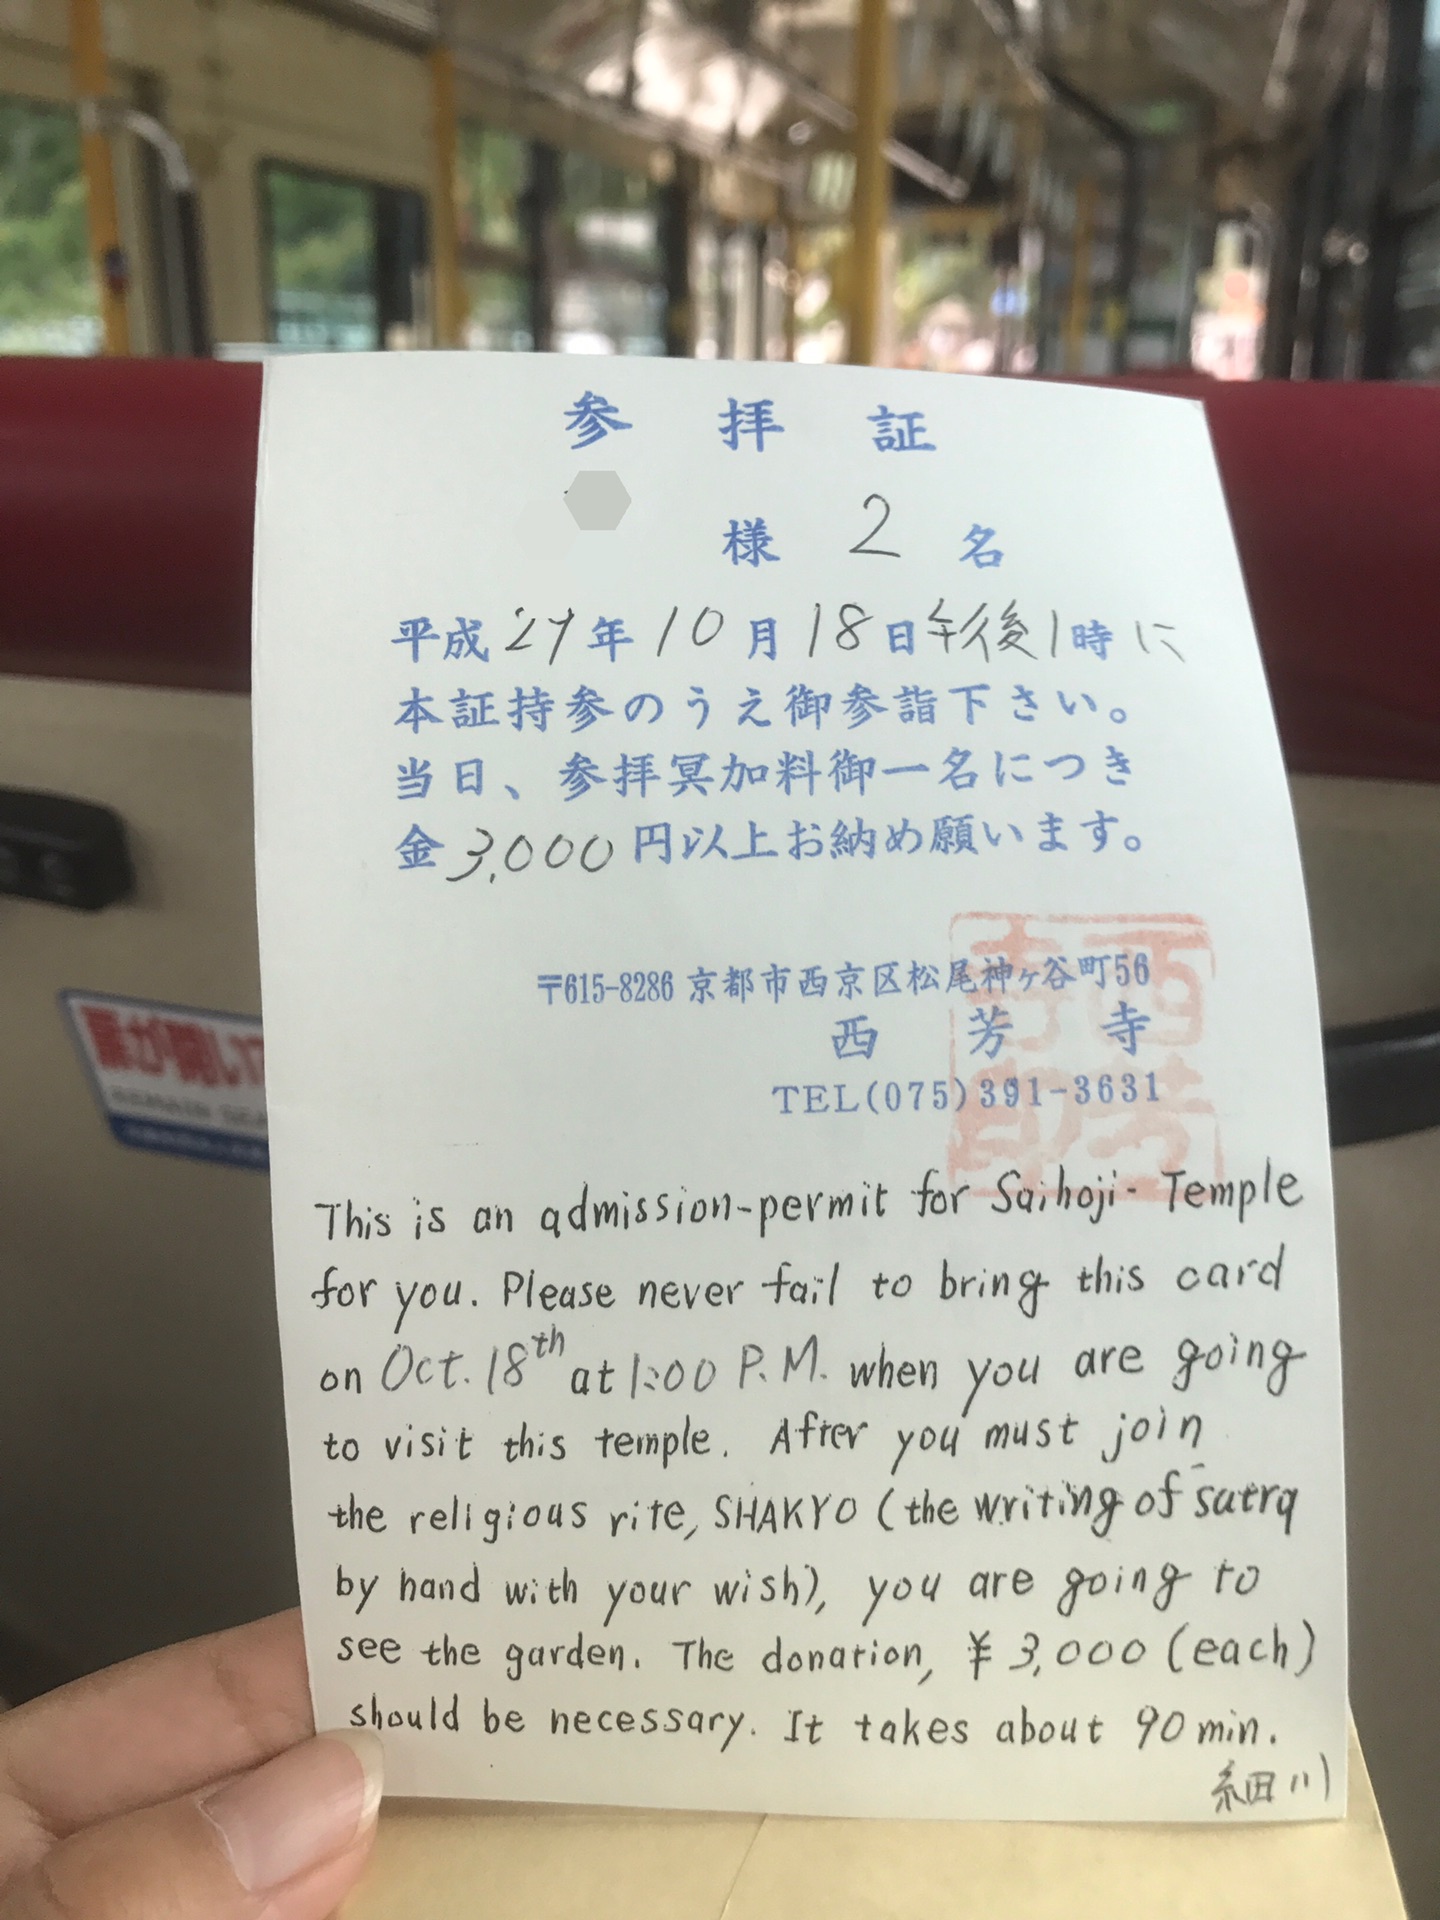 参拝証
様 2 名
平成29年10月18日午後1時に
本証持参のうえ御参詣下さい。
当日、参拝冥加料御一名につき
金3,000円以上お納め願います。
〒615-8286 京都市西京区松尾神ヶ谷町56
西芳寺
TEL(075)391-3631
西芳寺印
This is an admission-permit for Saihoji-Temple
for you. Please never fail to bring this card
on Oct. 18th at 1:00 P.M. when you are going
to visit this temple. After you must join
the religious rite, SHAKYO (the writing of sutra
by hand with your wish), you are going to
see the garden. The donation, ¥3,000 (each)
should be necessary. It takes about 90 min.
細川